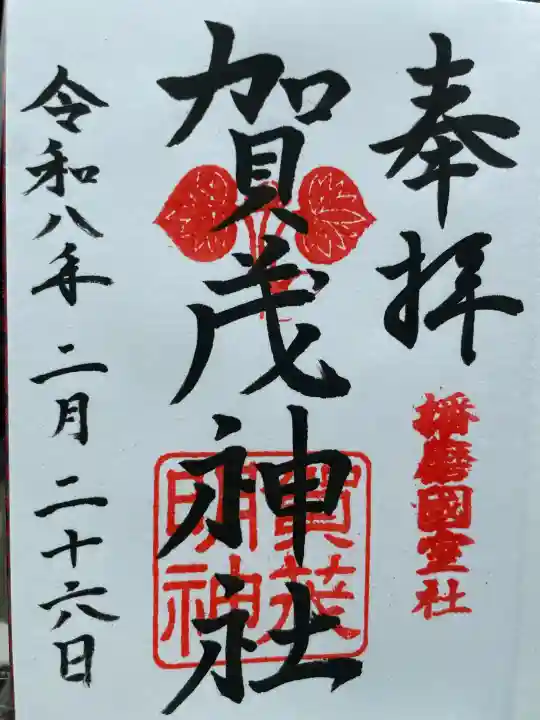 奉拝
播磨國室社
賀茂神社
賀茂
明神
令和八年 二月 二十六日